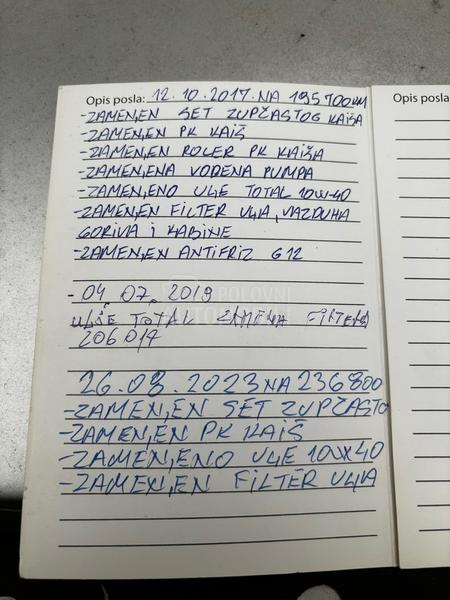 Opis posla: 12.10.2017. NA 195700KM
Opis posla
-ZAMENJEN SET ZUPČASTOG KAIŠA
-ZAMENJEN PK KAIŠ
-ZAMENJEN ROLER PK KAIŠA
-ZAMENJENA VODENA PUMPA
-ZAMENJENO ULJE TOTAL 10W-40
-ZAMENJEN FILTER ULJA, VAZDUHA
GORIVA I KABINE
-ZAMENJEN ANTIFRIZ G12
-04.07.2019
ULJE TOTAL ZAMENA FILTERA
206014
26.08.2023 NA 236800
-ZAMENJEN SET ZUPČASTO
-ZAMENJEN PK KAIŠ
-ZAMENJENO ULJE 10W40
-ZAMENJEN FILTER ULJA